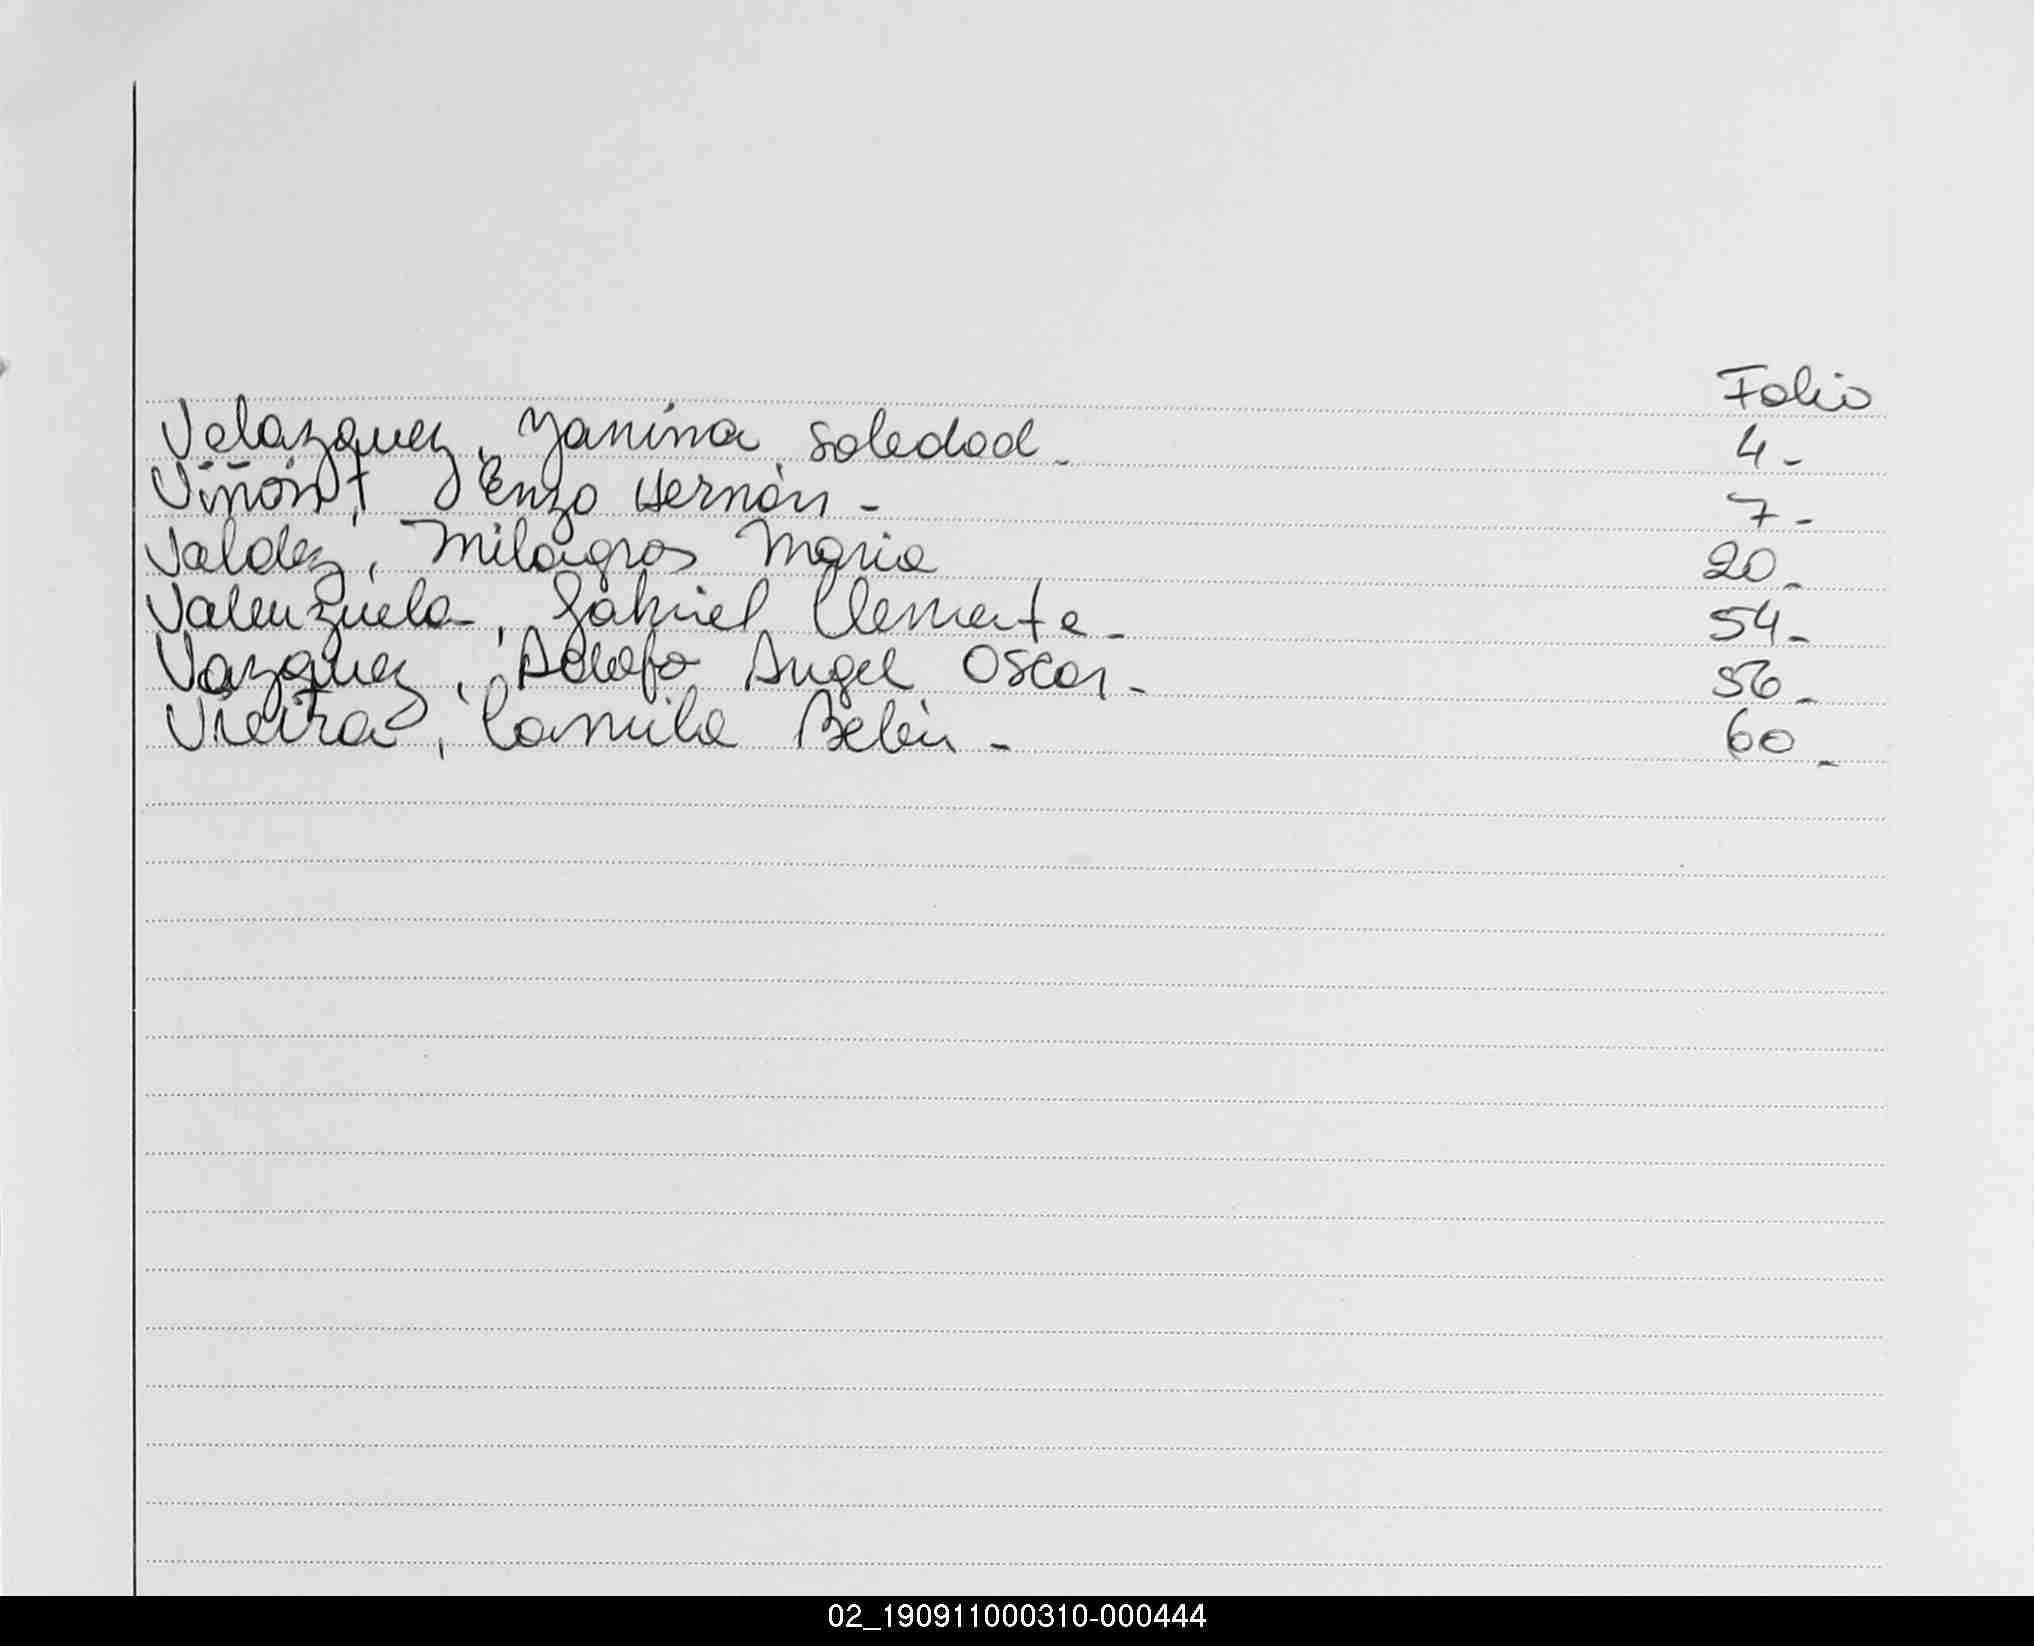 Folio
Velazquez, Yanina Soledad - 4 -
Enzo Hernán - 7 -
Valdez, Milagros Maria 20 -
Valenzuela, Gabriel Clemente - 54 -
Vazquez, Adolfo Angel Oscar - 56 -
Vieira, Camila Belén - 60 -
02_190911000310-000444